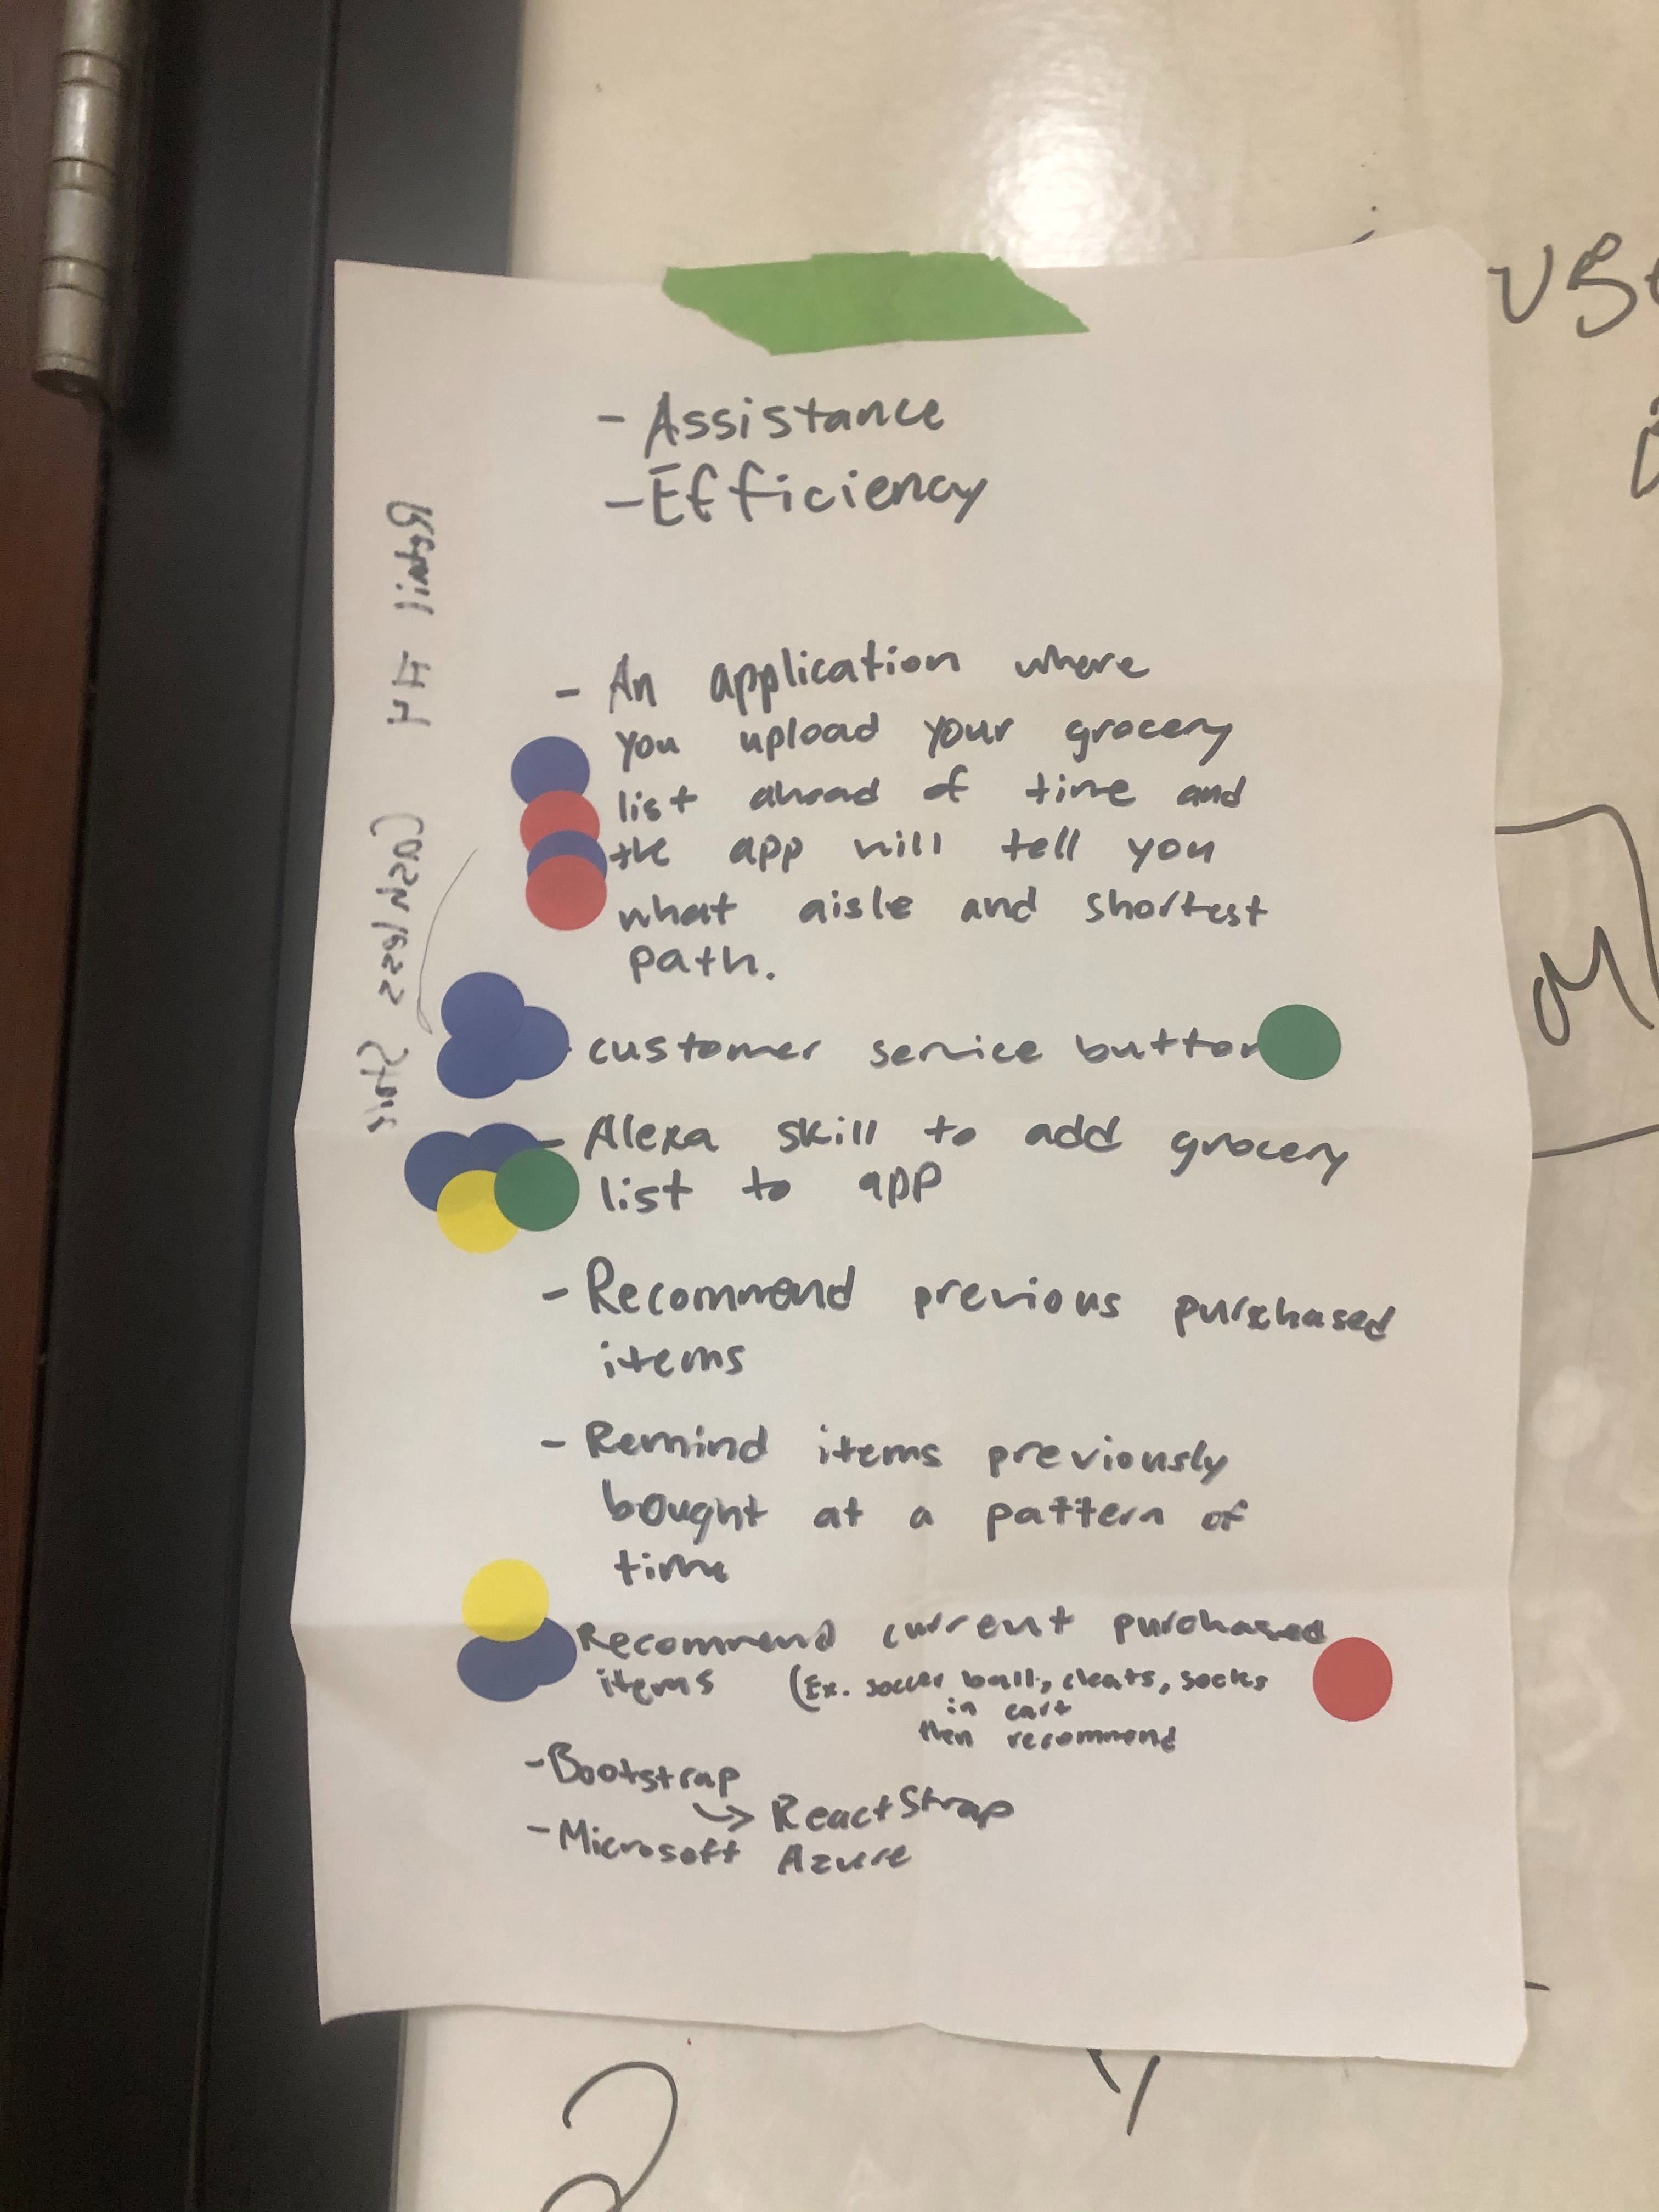 - Assistance
- Efficiency
Retail #4 Cashless Store
- An application where
you upload your grocery
list ahead of time and
the app will tell you
what aisle and shortest
path.
customer service button
- Alexa skill to add grocery
list to app
- Recommend previous purchased
items
- Remind items previously
bought at a pattern of
time
Recommend current purchased
items (Ex. soccer ball, cleats, socks
in cart
then recommend
- Bootstrap
→ ReactStrap
- Microsoft Azure
2